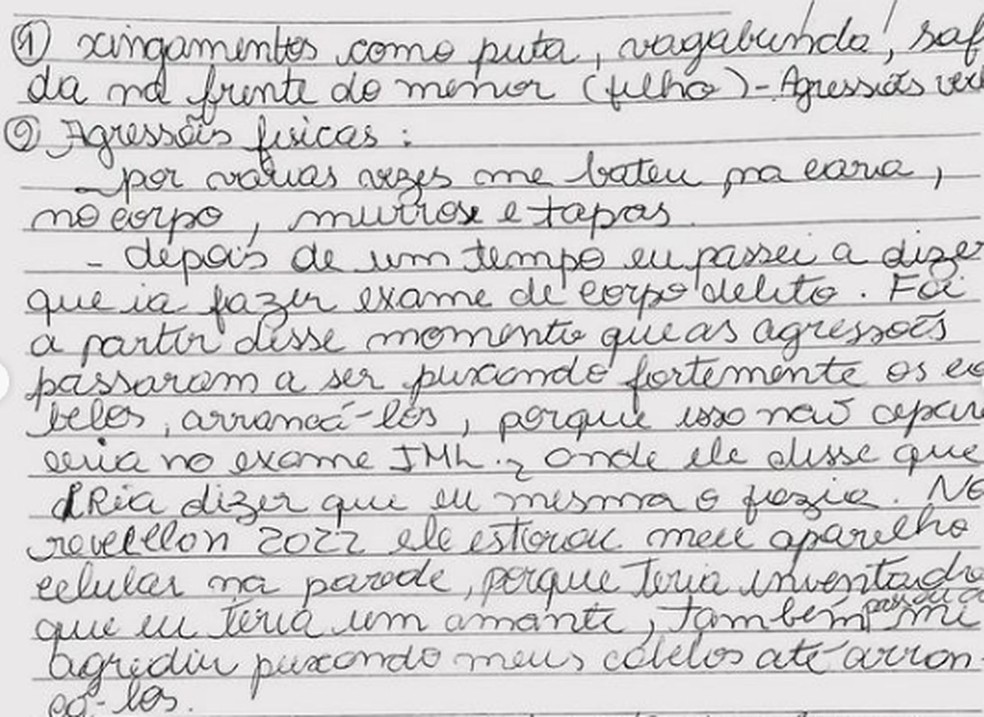 ① xingamentos como puta, vagabunda, saf
da na frente do menor (filho) - Agressões ver
② Agressões fisicas :
- por várias vezes me bateu na cara,
no corpo, murros e tapas.
- depois de um tempo eu passei a dize
que ia fazer exame de corpo delito. Foi
a partir disse momento que as agressões
passaram a ser puxando fortemente os ca
belos, arrancá-los, porque isso não apar
ceria no exame IML. onde ele disse que
iRia dizer que eu mesma o fazia. No
reveillon 2022 ele estorou meu aparelho
celular na parede, porque teria inventado
que eu teria um amante, também passou a mi
agrediu puxando meus cabelos até arran-
cá-los.